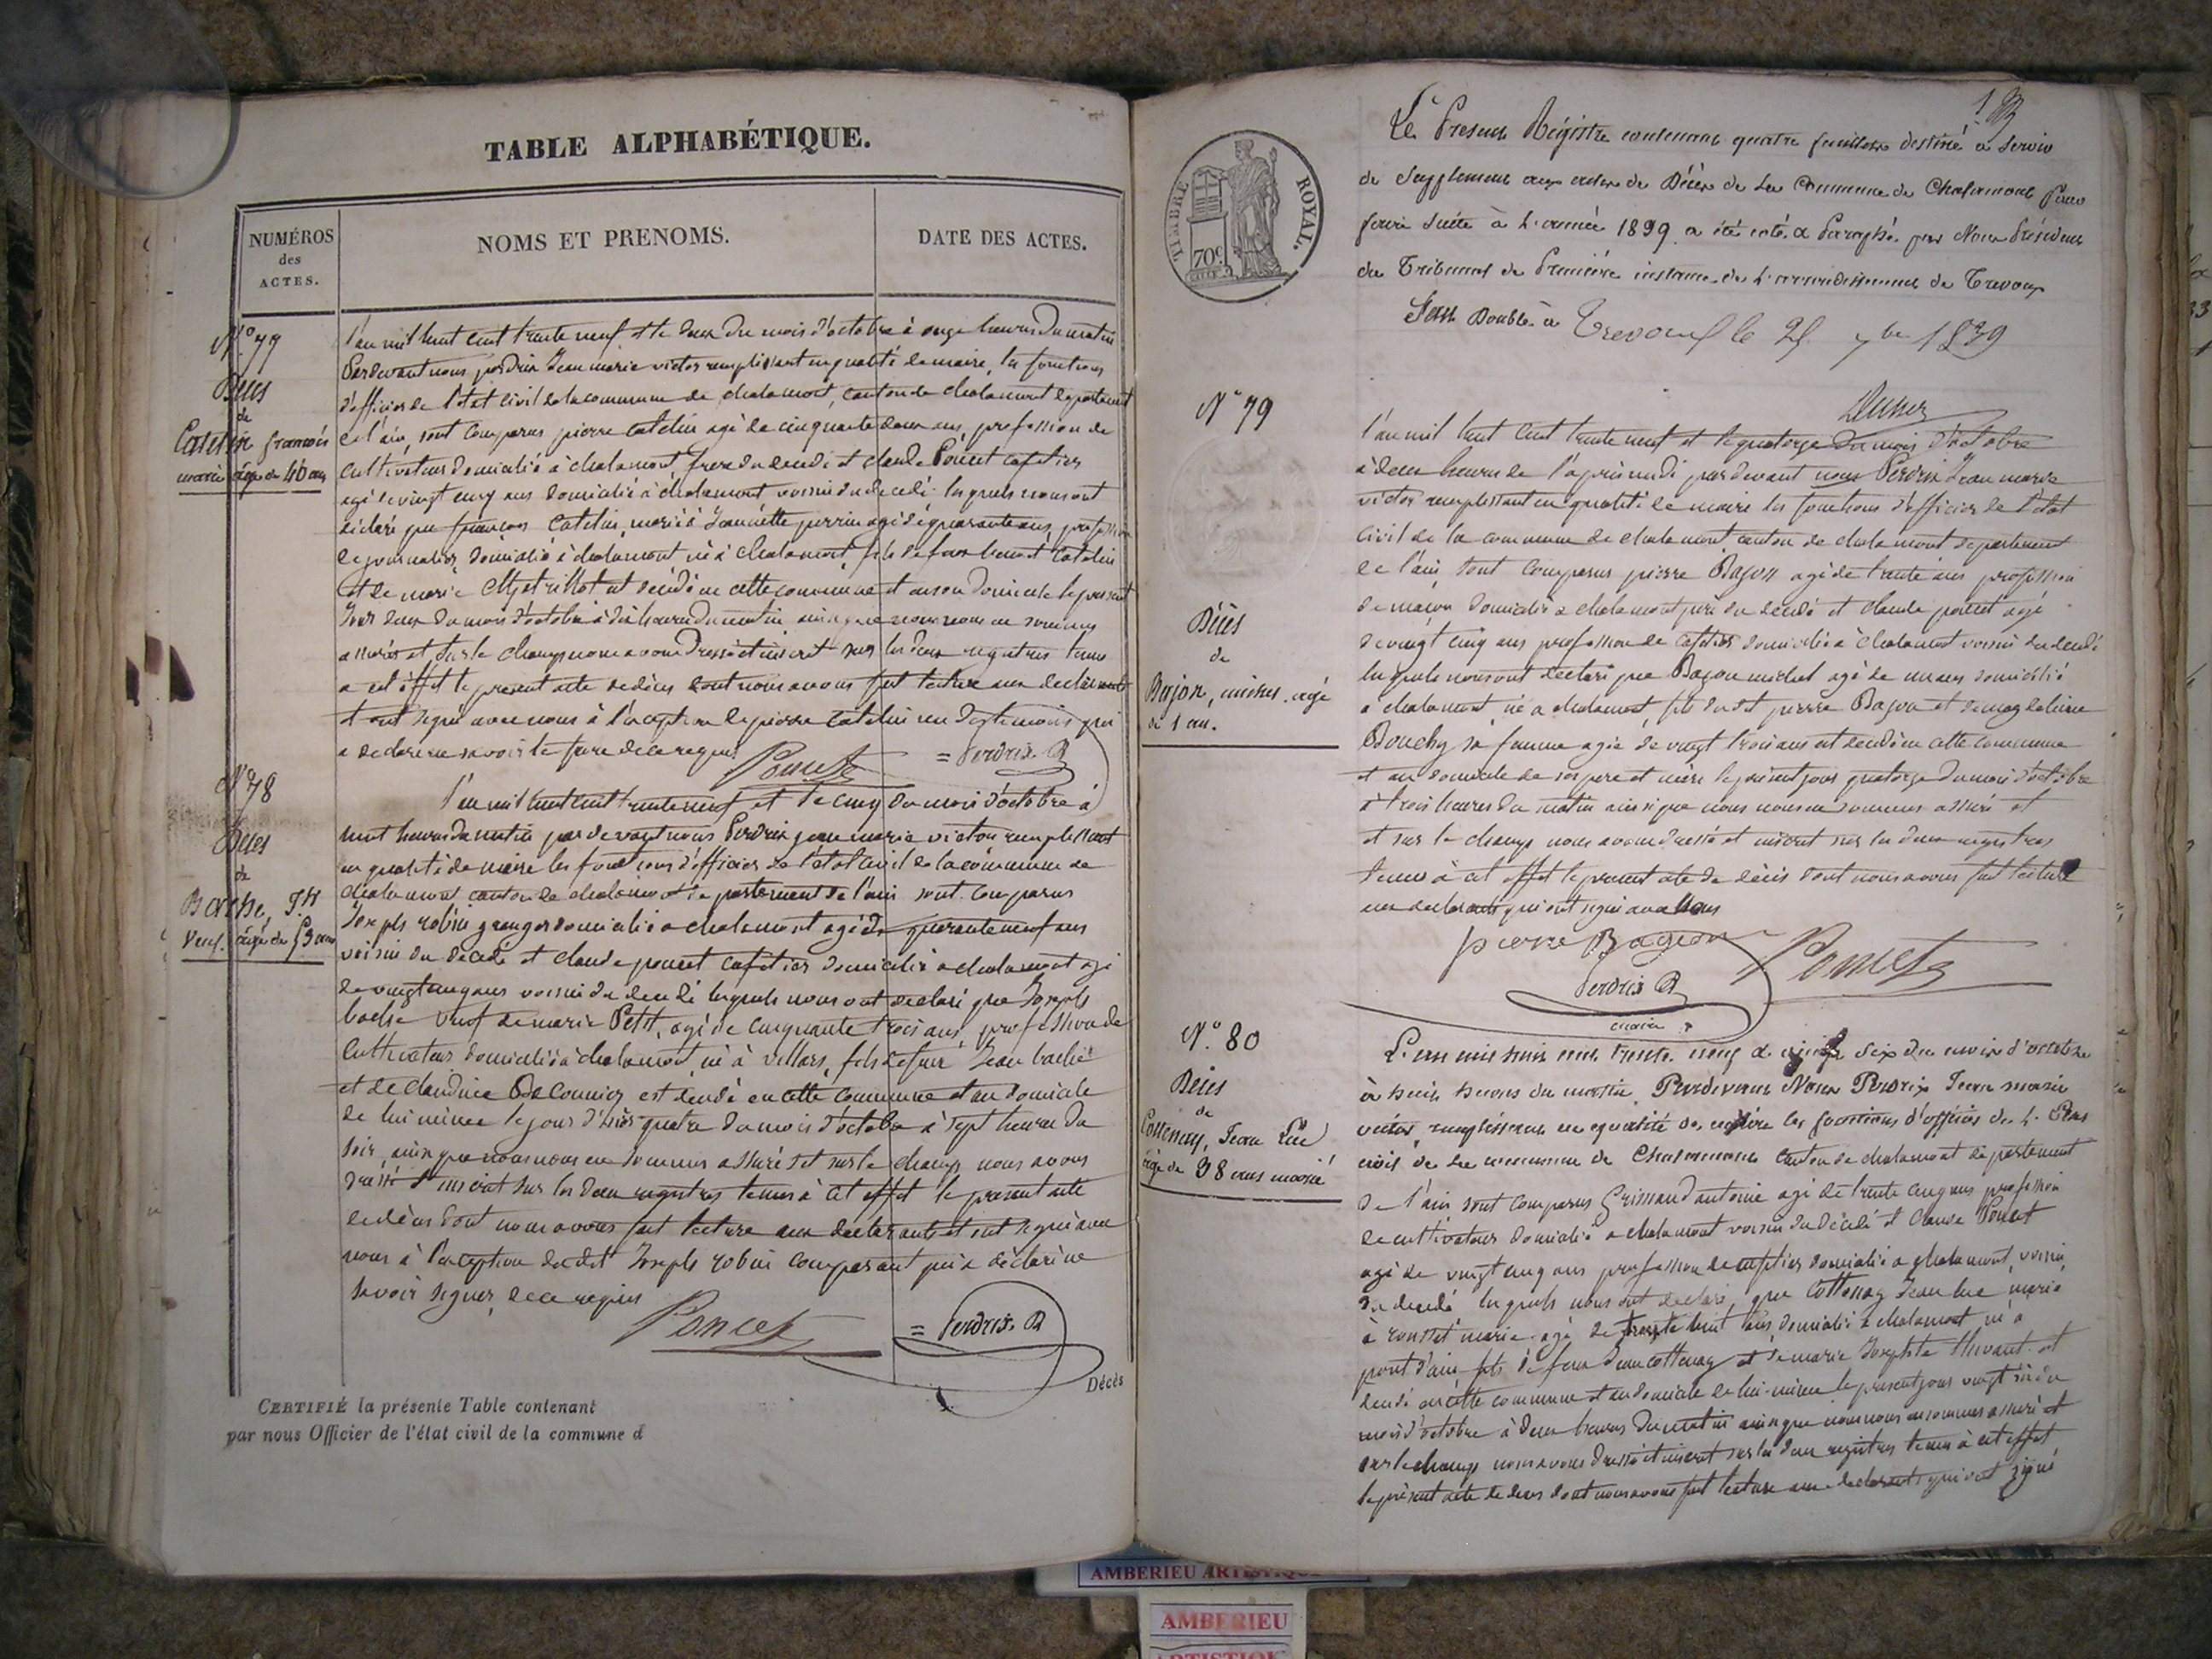 TABLE ALPHABÉTIQUE.
NUMÉROS
des
ACTES.
NOMS ET PRENOMS.
DATE DES ACTES.
N.° 77
Décès
de
Catelin françois
marié âgé de 40 ans
l'an mil huit cent trente neuf et le deux du mois d'octobre à onze heures du matin
Pardevant nous perdrix Jean marie victor remplissant en qualité de maire, les fonctions
d'officier de l'etat civil de la commune de chalamont, canton de chalamont departement
de l'ain, sont comparus pierre catelin agé de cinquante deux ans, profession de
cultivateur domicilié à chalamont, frere du decedé et claude Poncet cafetier
agé de vingt cinq ans domicilié à chalamont voisin du decedé lesquels nous ont
déclaré que françois Catelin, marié à Jeannette perrin agé de quarante ans, profession
de journalier, domicilié à chalamont, né à chalamont, fils de feu benoit Catelin
et de marie est décédé en cette commune et en son domicile le present
jour deux du mois d'octobre à dix heures du matin, ainsi que nous nous en sommes
assurés et sur le champ nous avons dressé et inscrit sur les deux registres tenus
a cet effet le present acte de décès dont nous avons fait lecture aux declarants
et ont signé avec nous à l'exception de pierre catelin un des temoins qui
a declaré ne savoir le faire de ce requis
Poncet = Perdrix
N° 78
Décès
de
Bache, J.h
Veuf. âgé de 53 ans
l'an mil huit cent trente neuf et le cinq du mois d'octobre à
huit heures du matin pardevant nous Perdrix jean marie victor remplissant
en qualité de maire les fonctions d'officier de l'état civil de la commune de
chalamont canton de chalamont departement de l'ain sont comparus
Joseph robin granger domicilié a chalamont agé de quarante neuf ans
voisin du décédé et claude poncet cafetier domicilié a chalamont agé
de vingt cinq ans voisin du decedé lesquels nous ont declaré que Joseph
bache veuf de marie Petit, agé de cinquante trois ans, profession de
Cultivateur domicilié à chalamont, né à villars, fils de feu Jean bache
et de claudine est decedé en cette commune et au domicile
de lui même le jour d'hier quatre du mois d'octobre à sept heures du
soir, ainsi que nous nous en sommes assuré et sur le champ nous avons
dressé et inscrit sur les deux registres tenus à cet effet le present acte
de décès dont nous avons fait lecture aux declarants et ont signé avec
nous à l'exception du dit Joseph robin comparant qui a déclaré ne
savoir signer, de ce requis
Poncet = Perdrix
Décès
CERTIFIÉ la présente Table contenant
par nous Officier de l'état civil de la commune d
TIMBRE ROYAL.
70c
1
Le Present Régistre contenant quatre feuillets destiné a servir
de Supplement aux actes de Décès de la Commune de Chalamont Pour
faire suite à L'année 1839 a été coté & Paraphé par Nous Président
du Tribunal de Premiére instance de L'arrondissement de Trevoux
Fait Double à Trevoux le 25 7bre 1839
N° 79
Décès
de
Bajon, michel, agé
de 1 an.
l'an mil huit cent trente neuf et le quatorze du mois d'octobre
à deux heures de l'après midi pardevant nous Perdrix Jean marie
victor remplissant en qualité de maire les fonctions d'officier de l'etat
civil de la commune de chalamont canton de chalamont departement
de l'ain, sont comparus pierre Bajon agé de trente ans profession
de maçon domicilié a chalamont père du decedé et claude poncet agé
de vingt cinq ans profession de cafetier domicilié a chalamont voisin du decedé
lesquels nous ont declaré que Bajon michel agé de un an domicilié
a chalamont, né a chalamont, fils du dit pierre Bajon et de magdeleine
Bouchy sa femme agée de vingt trois ans est decedé en cette commune
et au domicile de ses pere et mère le présent jour quatorze du mois d'octobre
à trois heures du matin ainsi que nous nous en sommes assuré et
et sur le champ nous avons dressé et inscrit sur les deux registres
tenus à cet effet le present acte de décès dont nous avons fait lecture
aux declarants qui ont signé avec Nous
pierre Bagion Poncet
Perdrix
maire
N.° 80
Décès
de
Cottenay, Jean Luc
âgé de 38 ans marié
L'an mil huit cent trente neuf & vingt Six du mois d'octobre
à huit heures du matin, Pardevant Nous Perdrix Jean marie
victor, remplissant en qualité de maire les fonctions d'officier de L'Etat
civil de la commune de Chalamont Canton de chalamont departement
de l'ain sont comparus Grissand antoine agé de trente cinq ans profession
de cultivateur domicilié a chalamont voisin du décédé et claude Poncet
agé de vingt cinq ans profession de cafetier domicilié a chalamont, voisin
du decedé lesquels nous ont declaré que Cottenay Jean luc marié
à rousset marie agé de trente huit ans, domicilié a chalamont né a
pont d'ain, fils de feu Jean cottenay et de marie Josephte est
decedé en cette commune et au domicile de lui-même le present jour vingt six du
mois d'octobre à deux heures du matin ainsi que nous nous en sommes assuré et
sur le champ nous avons dressé et inscrit sur les deux registres tenus à cet effet
le présent acte de deces dont nous avons fait lecture aux declarants qui ont signé
AMBERIEU ARTISTIQUE
AMBERIEU
ARTISTIQUE